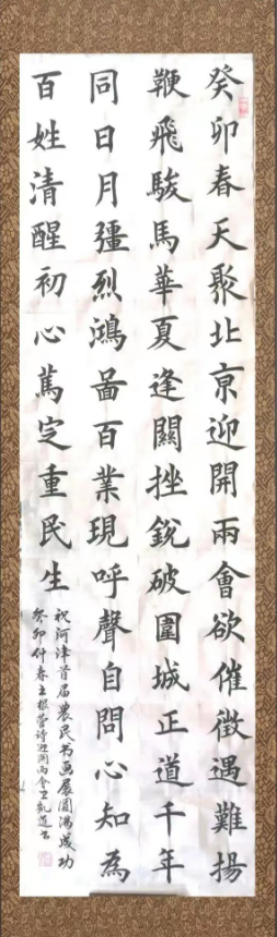 癸卯春天聚北亰迎開兩會欲催徵遇難揚
鞭飛駿馬華夏逢關挫銳破圍城正道千年
同日月彊烈鴻啚百業現呼聲自問心知為
百姓清醒初心篤定重民生
祝河津首届農民书画展圓满成功
癸卯仲春王根诗迎開两會